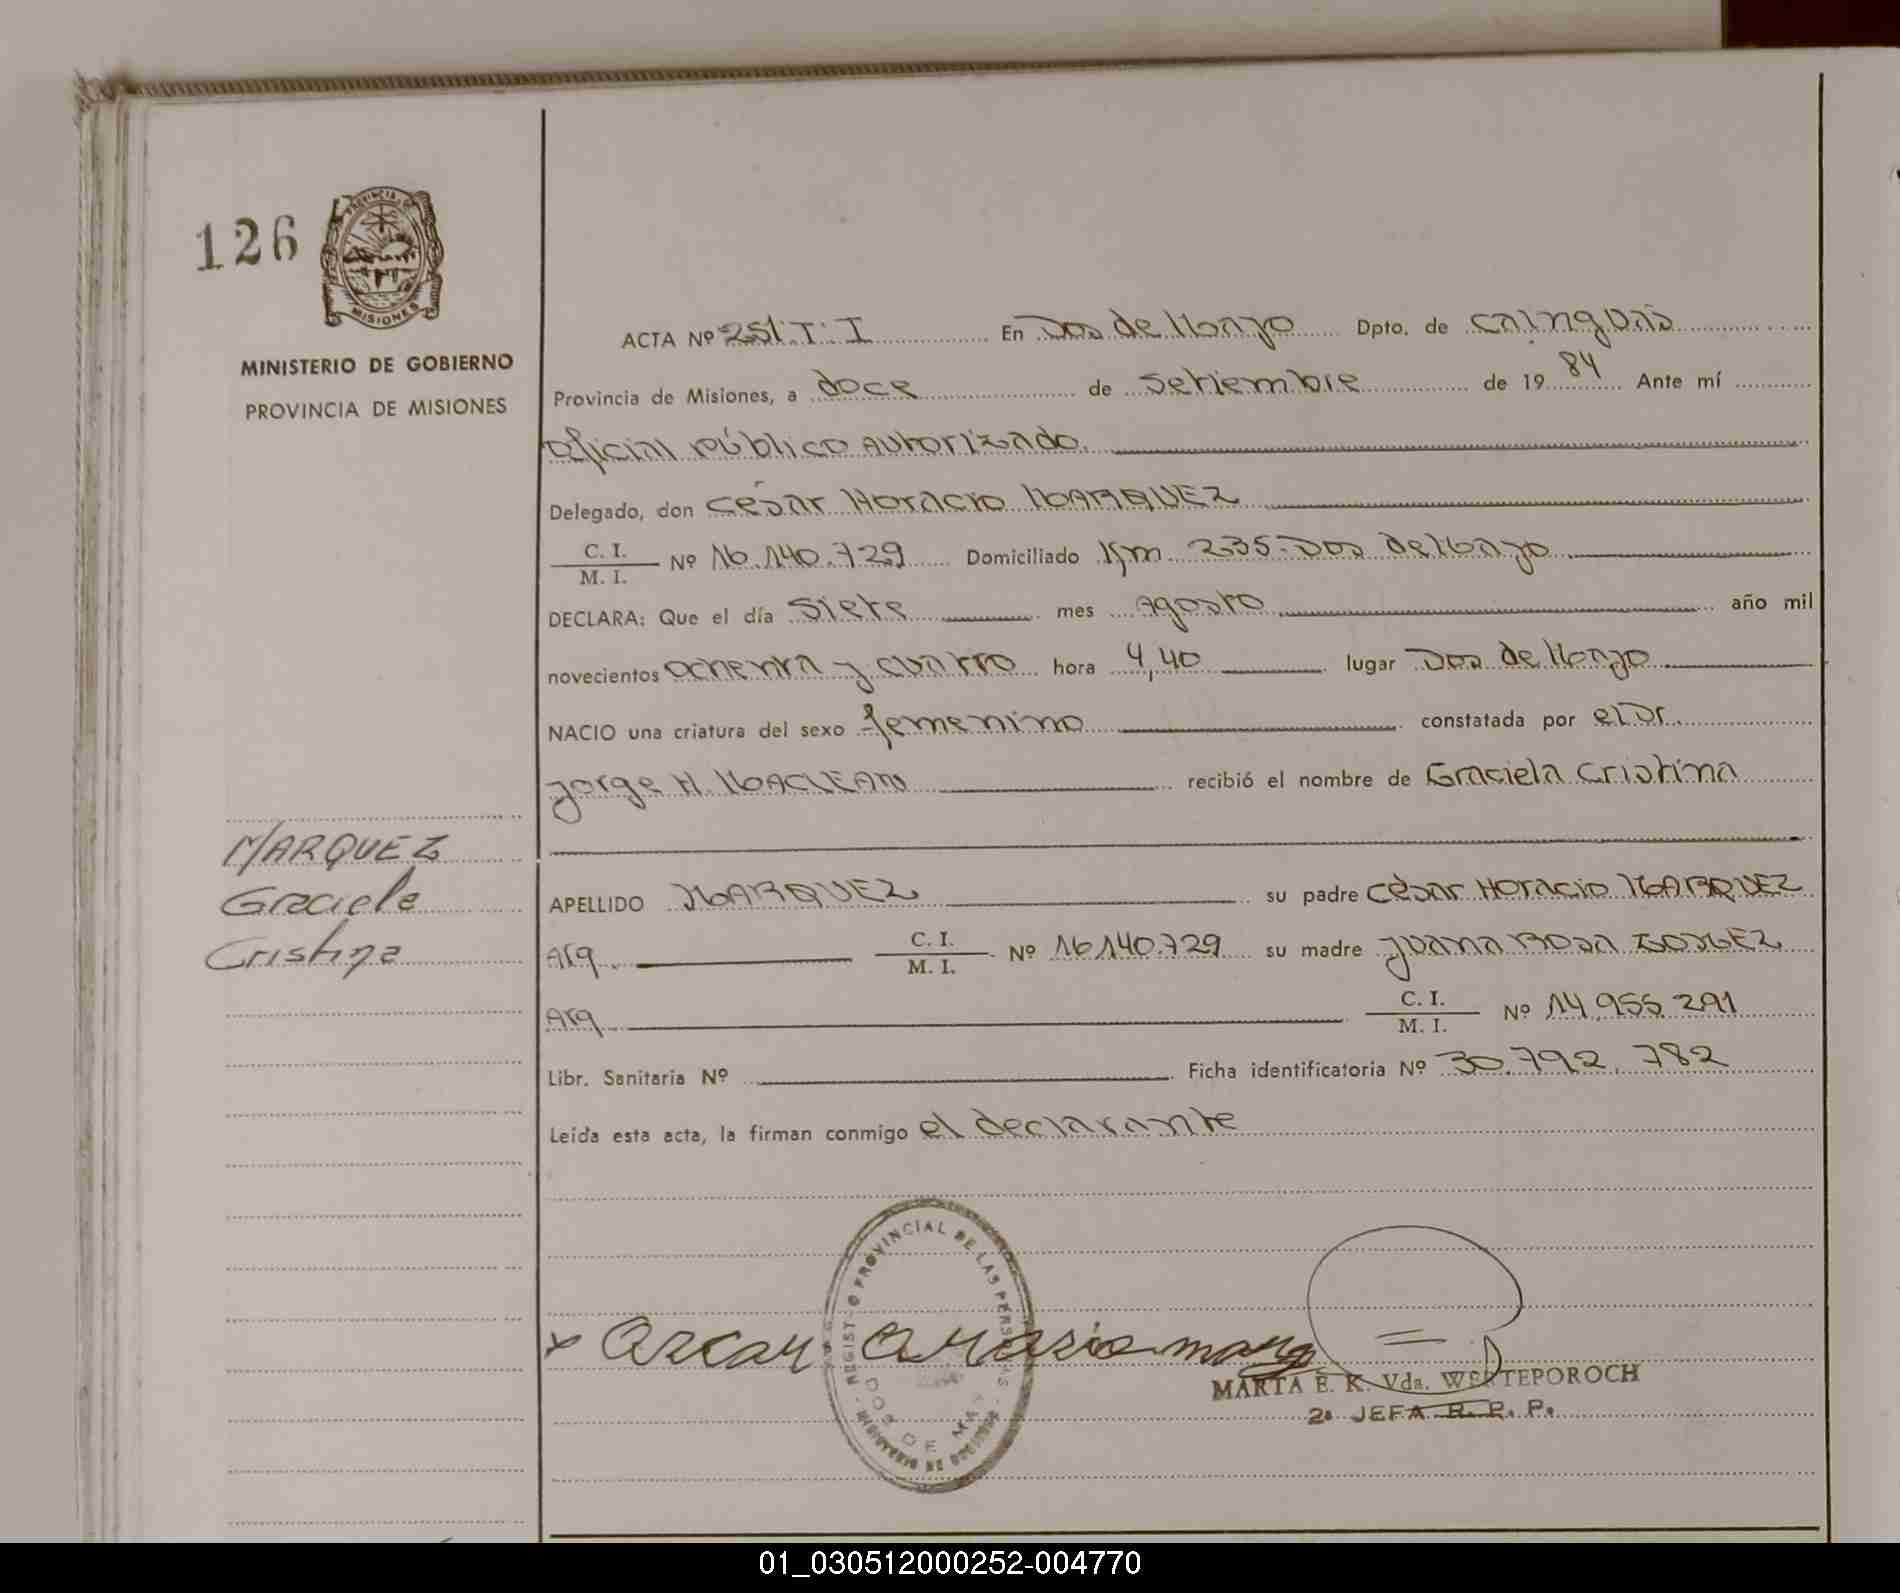 126
PROVINCIA DE
MISIONES
MINISTERIO DE GOBIERNO
PROVINCIA DE MISIONES
ACTA Nº 251. T: I En Dos de Mayo Dpto. de Cainguás
Provincia de Misiones, a doce de Setiembre de 19 84 Ante mí
Oficial público Autorizado.
Delegado, don César Horacio MARQUEZ
C. I.
M. I.
Nº 16.140.729 Domiciliado Km. 235. Dos de Mayo
DECLARA: Que el día Siete mes Agosto año mil
novecientos ochenta y cuatro hora 4,40 lugar Dos de Mayo
NACIO una criatura del sexo femenino constatada por el Dr.
Jorge H. MACLEAN recibió el nombre de Graciela Cristina
MARQUEZ
Graciela
Cristina
APELLIDO MARQUEZ su padre César Horacio MARQUEZ
Arg. C. I.
M. I.
Nº 16.140.729 su madre Juana Rosa
Arg. C. I.
M. I.
Nº 14.955.291
Libr. Sanitaria Nº Ficha identificatoria Nº 30.792.782
Leída esta acta, la firman conmigo el declarante
REGISTRO PROVINCIAL DE LAS PERSONAS
DOS DE MAYO
MARTA E. K. Vda. WERTEPOROCH
2ª JEFA R. P. P.
01_030512000252-004770